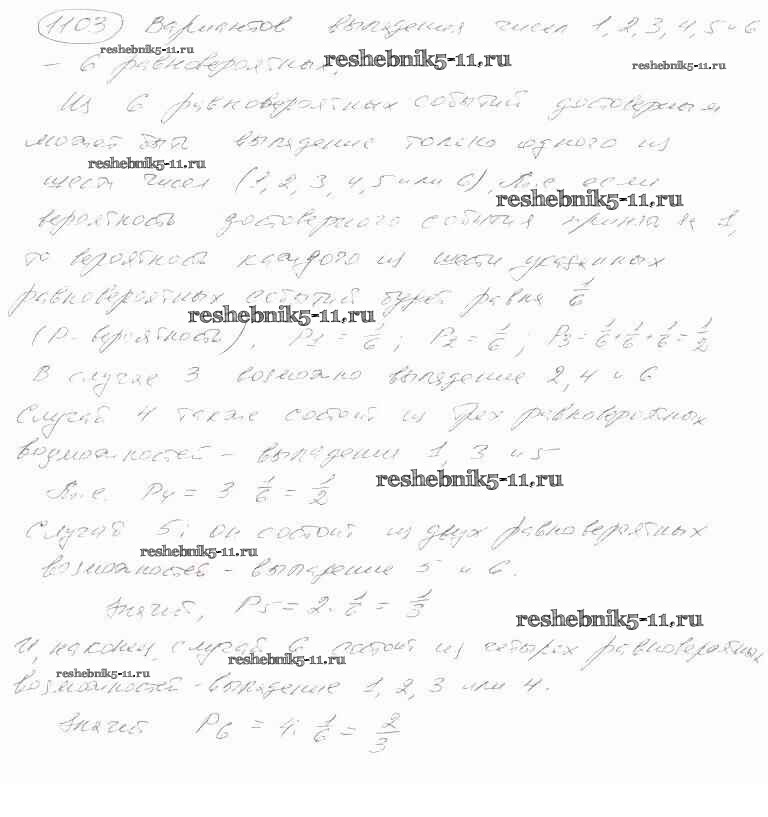 1103 Вариантов выпадения чисел 1, 2, 3, 4, 5 и 6
reshebnik5-11.ru
– 6 равновероятных.
reshebnik5-11.ru
reshebnik5-11.ru
Из 6 равновероятных событий достоверным
может быть выпадение только одного из
reshebnik5-11.ru
шести чисел (1, 2, 3, 4, 5 или 6), т.е. если
reshebnik5-11.ru
вероятность достоверного события принять за 1,
то вероятность каждого из шести указанных
равновероятных событий будет равна 1/6
reshebnik5-11.ru
(P - вероятность), P1 = 1/6; P2 = 1/6; P3 = 1/6 + 1/6 + 1/6 = 1/2
В случае 3 возможно выпадение 2, 4 и 6
Случай 4 также состоит из трех равновероятных
возможностей – выпадении 1, 3 и 5
reshebnik5-11.ru
т.е. P4 = 3 1/6 = 1/2
Случай 5: он состоит из двух равновероятных
reshebnik5-11.ru
возможностей – выпадение 5 и 6.
Значит, P5 = 2 · 1/6 = 1/3
reshebnik5-11.ru
И, наконец, случай 6 состоит из четырех равновероятных
reshebnik5-11.ru
reshebnik5-11.ru
возможностей – выпадение 1, 2, 3 или 4.
Значит P6 = 4 · 1/6 = 2/3